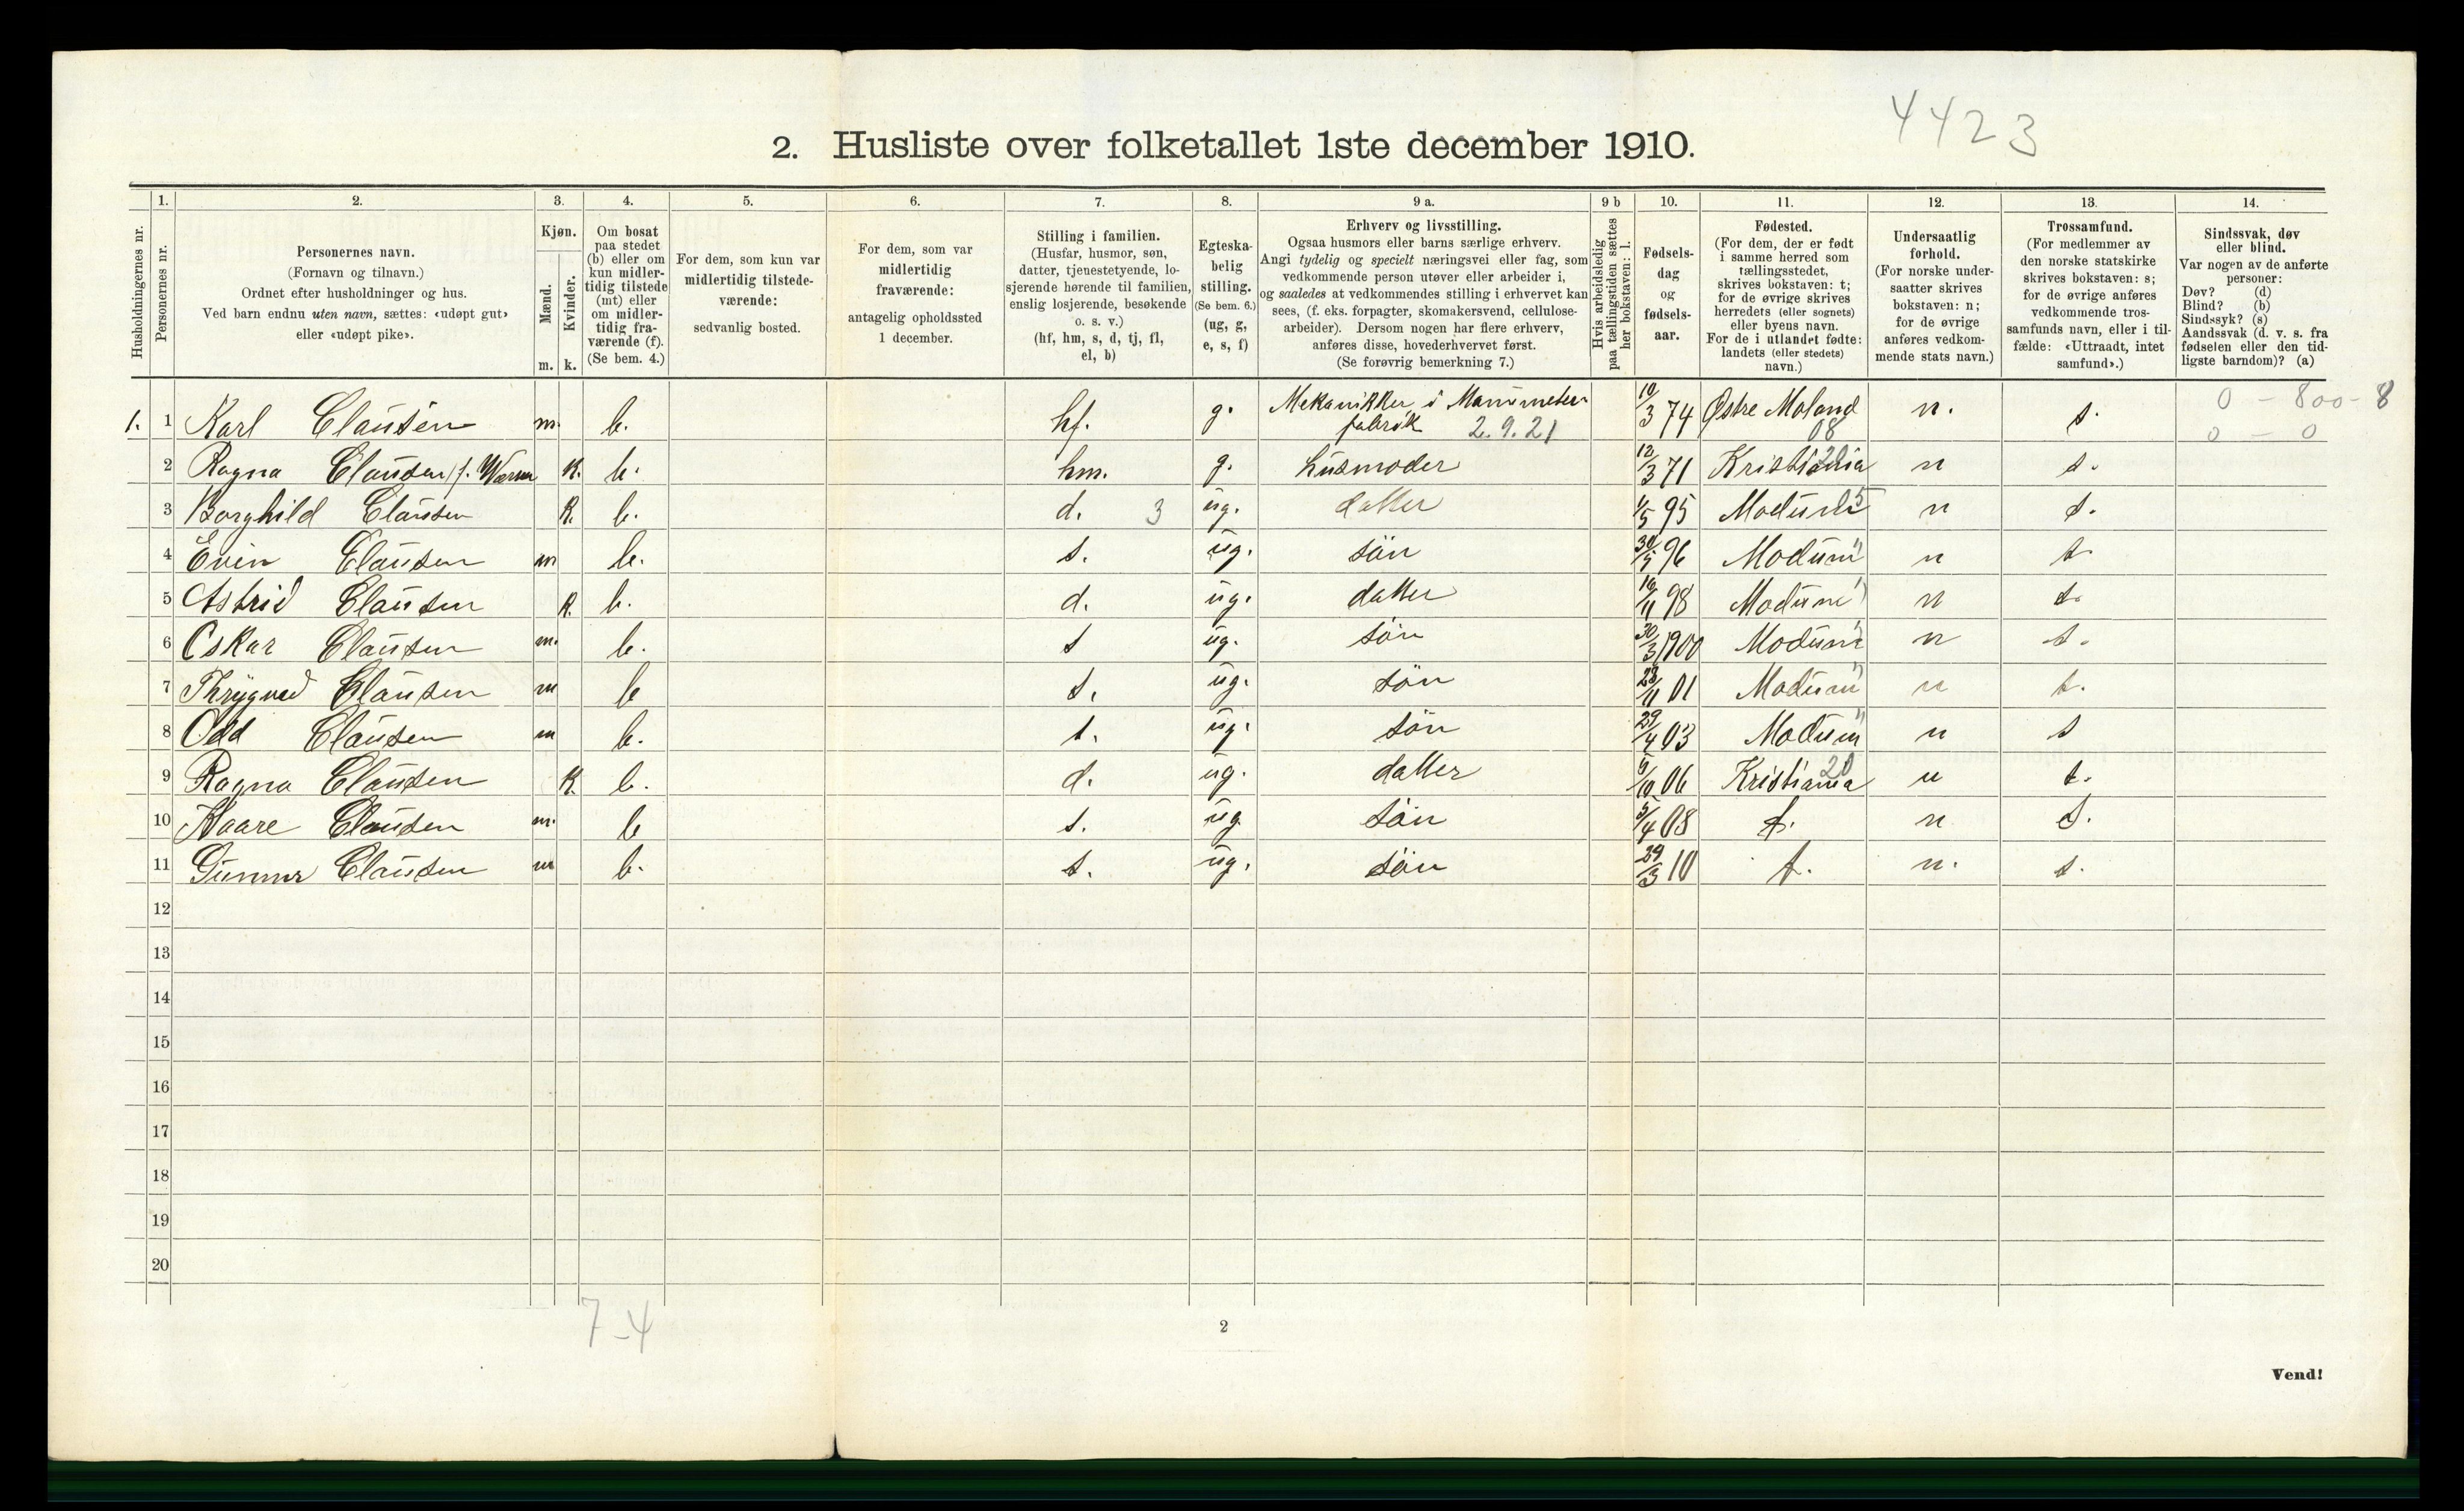 4423
2. Husliste over folketallet 1ste december 1910.
1. 2. 3. 4. 5. 6. 7. 8. 9 a. 9 b 10. 11. 12. 13. 14.
Husholdningernes nr.
Personernes nr.
Personernes navn.
(Fornavn og tilnavn.)
Ordnet efter husholdninger og hus.
Ved barn endnu uten navn, sættes: «udøpt gut»
eller «udøpt pike».
Kjøn.
Mænd.
Kvinder.
m. k.
Om bosat
paa stedet
(b) eller om
kun midler-
tidig tilstede
(mt) eller
om midler-
tidig fra-
værende (f).
(Se bem. 4.)
For dem, som kun var
midlertidig tilstede-
værende:
sedvanlig bosted.
For dem, som var
midlertidig
fraværende:
antagelig opholdssted
1 december.
Stilling i familien.
(Husfar, husmor, søn,
datter, tjenestetyende, lo-
sjerende hørende til familien,
enslig losjerende, besøkende
o. s. v.)
(hf, hm, s, d, tj, fl,
el, b)
Egteska-
belig
stilling.
(Se bem. 6.)
(ug, g,
e, s, f)
Erhverv og livsstilling.
Ogsaa husmors eller barns særlige erhverv.
Angi tydelig og specielt næringsvei eller fag, som
vedkommende person utøver eller arbeider i,
og saaledes at vedkommendes stilling i erhvervet kan
sees, (f. eks. forpagter, skomakersvend, cellulose-
arbeider). Dersom nogen har flere erhverv,
anføres disse, hovederhvervet først.
(Se forøvrig bemerkning 7.)
Hvis arbeidsledig
paa tællingstiden sættes
her bokstaven: l.
Fødsels-
dag
og
fødsels-
aar.
Fødested.
(For dem, der er født
i samme herred som
tællingsstedet,
skrives bokstaven: t;
for de øvrige skrives
herredets (eller sognets)
eller byens navn.
For de i utlandet fødte:
landets (eller stedets)
navn.)
Undersaatlig
forhold.
(For norske under-
saatter skrives
bokstaven: n;
for de øvrige
anføres vedkom-
mende stats navn.)
Trossamfund.
(For medlemmer av
den norske statskirke
skrives bokstaven: s;
for de øvrige anføres
vedkommende tros-
samfunds navn, eller i til-
fælde: «Uttraadt, intet
samfund».)
Sindssvak, døv
eller blind.
Var nogen av de anførte
personer:
Døv? (d)
Blind? (b)
Sindssyk? (s)
Aandssvak (d. v. s. fra
fødselen eller den tid-
ligste barndom)? (a)
1. 1 Karl Clausen m. b. hf. g. Mekanikker i Manometer- 10/3 74 Østre Moland n. s. 0 - 800 - 8
fabrik 2.9.21 08 0 - 0
2 Ragna Clausen f. k. b. hm. g. husmoder 12/3 71 Kristiania 20 n s.
3 Borghild Clausen k. b. d. 3 ug. datter 1/5 95 Modum n s.
4 Evin Clausen m b. s. ug. sön 30/5 96 Modum " n s.
5 Astrid Clausen k. b. d. ug. datter 16/11 98 Modum " n s.
6 Oskar Clausen m. b. s ug. sön 30/3 1900 Modum " n s.
7 Thrygved Clausen m b s. ug. sön 23/11 01 Modum " n s.
8 Odd Clausen m b. s. ug. sön 29/4 03 Modum " n s
9 Ragna Clausen k. b. d. ug. datter 9/10 06 Kristiania 20 n s.
10 Kaare Clausen m. b s. ug. sön 5/4 08 t. n s.
11 Gunnar Clausen m b. s. ug. sön 29/3 10 t. n. s.
12
13
14
15
16
17
18
19
20
7-4
2
Vend!